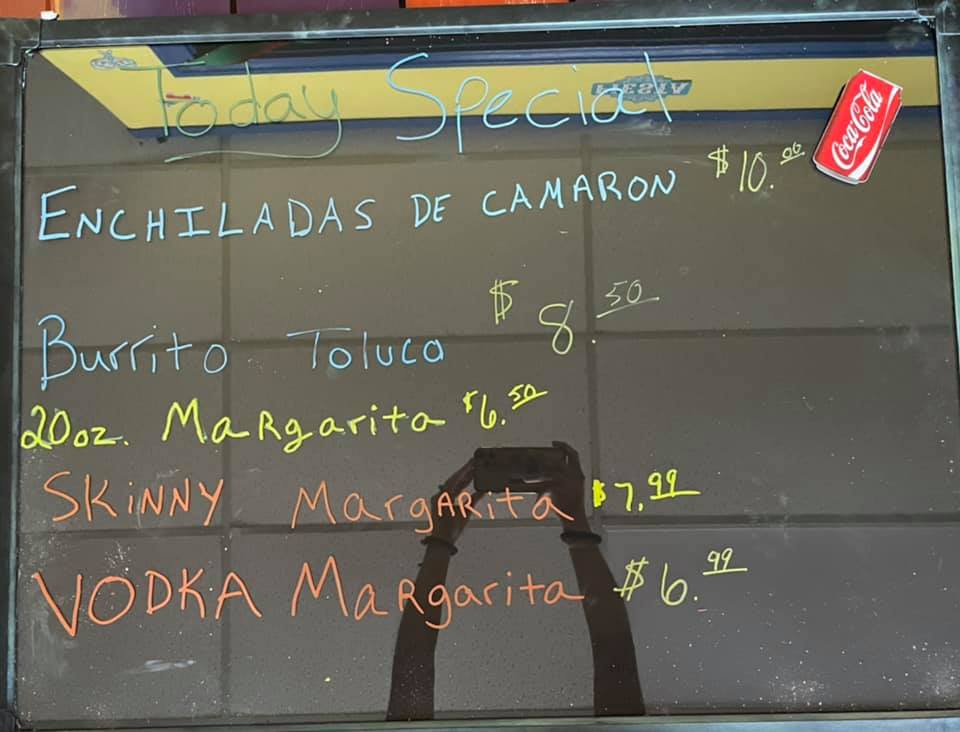 Today Special
ENCHILADAS DE CAMARON $10.00
Burrito Toluca $8.50
20oz. MaRgarita $6.50
SKiNNY MargARita $7.99
VODKA MaRgarita $6.99
Coca-Cola